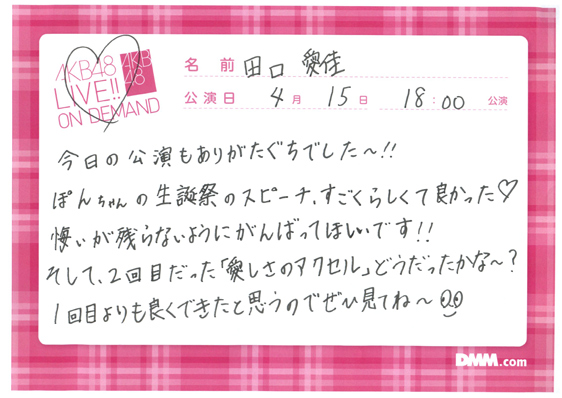 AKB48
LIVE!!
ON DEMAND
AKB
48
名前 田口 愛佳
公演日 4月 15日 18:00 公演
今日の公演もありがたぐちでした〜!!
ぽんちゃんの生誕祭のスピーチ、すごくらしくて良かった♡
悔いが残らないようにがんばってほしいです!!
そして、2回目だった「愛しさのアクセル」どうだったかな〜?
1回目よりも良くできたと思うのでぜひ見てね〜
DMM.com